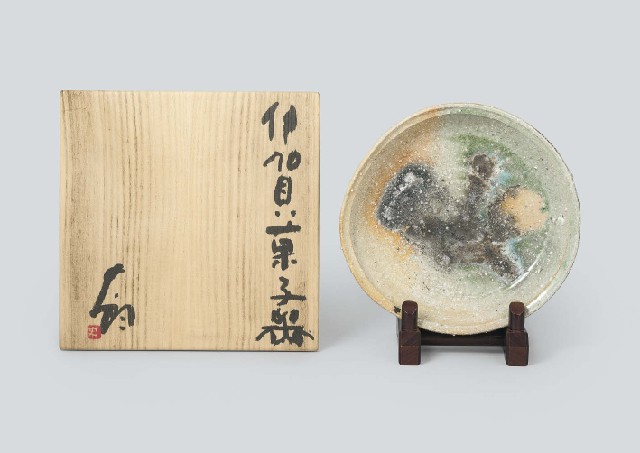 伊賀菓子器